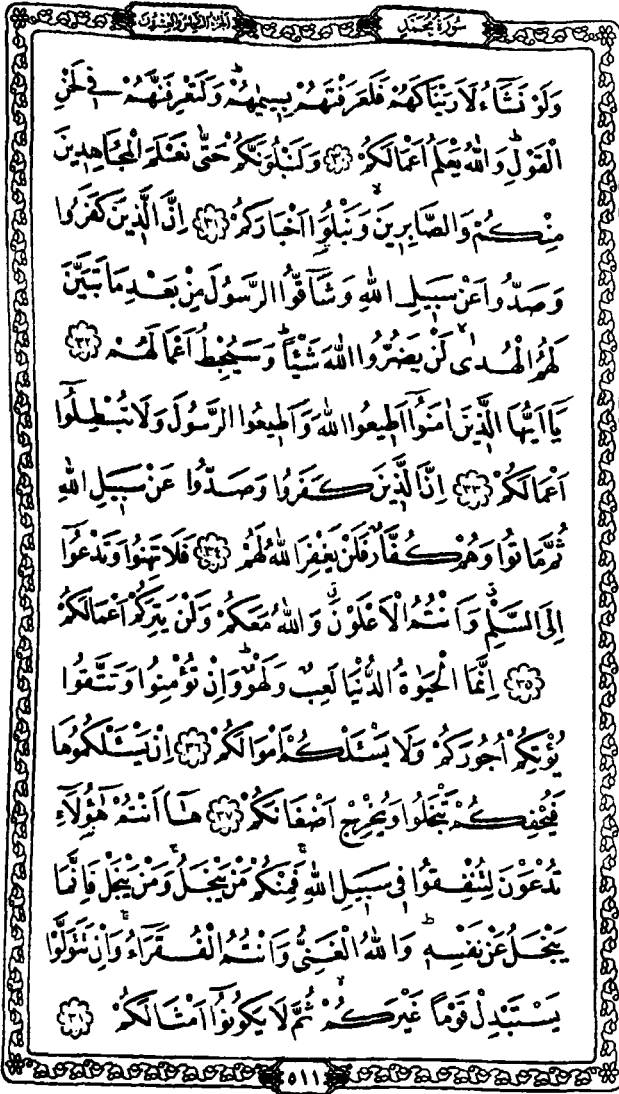 سُورَةُ مُحَمَّدٍ
الجزء السادس والعشرون
وَلَوْ نَشَٓاءُ لَاَرَيْنَاكَهُمْ فَلَعَرَفْتَهُمْ بِسِيمٰيهُمْۜ وَلَتَعْرِفَنَّهُمْ فٖي لَحْنِ
الْقَوْلِۜ وَاللّٰهُ يَعْلَمُ اَعْمَالَكُمْ ﴿٣٠﴾ وَلَنَبْلُوَنَّكُمْ حَتّٰى نَعْلَمَ الْمُجَاهِدٖينَ
مِنْكُمْ وَالصَّابِرٖينَۙ وَنَبْلُوَ۬ا اَخْبَارَكُمْ ﴿٣١﴾ اِنَّ الَّذٖينَ كَفَرُوا
وَصَدُّوا عَنْ سَبٖيلِ اللّٰهِ وَشَٓاقُّوا الرَّسُولَ مِنْ بَعْدِ مَا تَبَيَّنَ
لَهُمُ الْهُدٰىۙ لَنْ يَضُرُّوا اللّٰهَ شَيْـٔاًۜ وَسَيُحْبِطُ اَعْمَالَهُمْ ﴿٣٢﴾
يَٓا اَيُّهَا الَّذٖينَ اٰمَنُٓوا اَطٖيعُوا اللّٰهَ وَاَطٖيعُوا الرَّسُولَ وَلَا تُبْطِلُٓوا
اَعْمَالَكُمْ ﴿٣٣﴾ اِنَّ الَّذٖينَ كَفَرُوا وَصَدُّوا عَنْ سَبٖيلِ اللّٰهِ
ثُمَّ مَاتُوا وَهُمْ كُفَّارٌ فَلَنْ يَغْفِرَ اللّٰهُ لَهُمْ ﴿٣٤﴾ فَلَا تَهِنُوا وَتَدْعُٓوا
اِلَى السَّلْمِۗ وَاَنْتُمُ الْاَعْلَوْنَۗ وَاللّٰهُ مَعَكُمْ وَلَنْ يَتِرَكُمْ اَعْمَالَكُمْ
﴿٣٥﴾ اِنَّمَا الْحَيٰوةُ الدُّنْيَا لَعِبٌ وَلَهْوٌۜ وَاِنْ تُؤْمِنُوا وَتَتَّقُوا
يُؤْتِكُمْ اُجُورَكُمْ وَلَا يَسْـَٔلْكُمْ اَمْوَالَكُمْ ﴿٣٦﴾ اِنْ يَسْـَٔلْكُمُوهَا
فَيُحْفِكُمْ تَبْخَلُوا وَيُخْرِجْ اَضْغَانَكُمْ ﴿٣٧﴾ هَٓا اَنْتُمْ هٰٓؤُ۬لَٓاءِ
تُدْعَوْنَ لِتُنْفِقُوا فٖي سَبٖيلِ اللّٰهِۚ فَمِنْكُمْ مَنْ يَبْخَلُۚ وَمَنْ يَبْخَلْ فَاِنَّمَا
يَبْخَلُ عَنْ نَفْسِهٖۜ وَاللّٰهُ الْغَنِيُّ وَاَنْتُمُ الْفُقَرَٓاءُۚ وَاِنْ تَتَوَلَّوْا
يَسْتَبْدِلْ قَوْماً غَيْرَكُمْۙ ثُمَّ لَا يَكُونُٓوا اَمْثَالَكُمْ ﴿٣٨﴾
٥١١